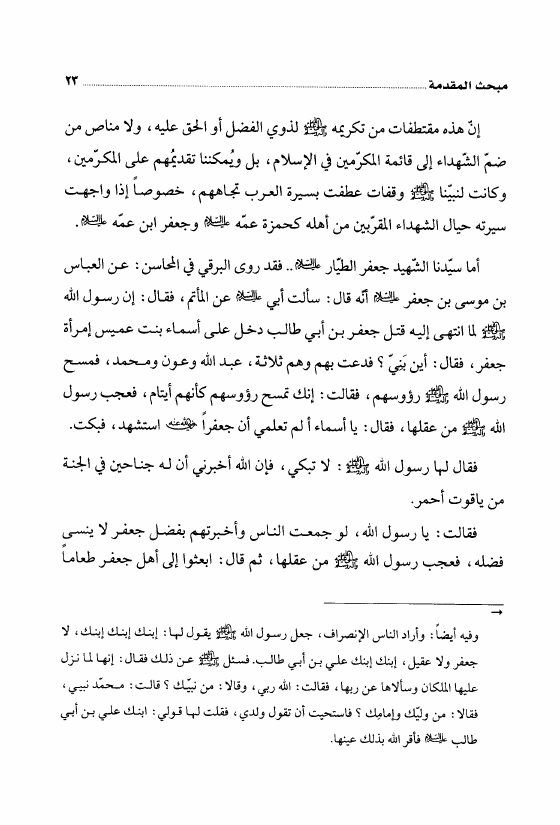 مبحث المقدمة ........ ٢٣
إنّ هذه مقتطفات من تكريمه ﷺ لذوي الفضل أو الحق عليه، ولا مناص من
ضمّ الشّهداء إلى قائمة المكرّمين في الإسلام، بل ويُمكننا تقديمُهم على المكرّمين،
وكانت لنبيّنا ﷺ وقفات عطفت بسيرة العرب تجاههم، خصوصاً إذا واجهت
سيرته حيال الشهداء المقرّبين من أهله كحمزة عمّه عليه السلام وجعفر ابن عمّه عليه السلام.
أما سيّدنا الشّهيد جعفر الطيّار عليه السلام.. فقد روى البرقي في المحاسن: عن العباس
بن موسى بن جعفر عليه السلام أنّه قال: سألت أبي عليه السلام عن المأتم، فقال: إن رسول الله
ﷺ لما انتهى إليه قتل جعفر بن أبي طالب دخل على أسماء بنت عميس إمرأة
جعفر، فقال: أين بَنِيّ؟ فدعت بهم وهم ثلاثة، عبد الله وعون ومحمد، فمسح
رسول الله ﷺ رؤوسهم، فقالت: إنك تمسح رؤوسهم كأنهم أيتام، فعجب رسول
الله ﷺ من عقلها، فقال: يا أسماء ألم تعلمي أن جعفراً رضي الله عنه استشهد، فبكت.
فقال لها رسول الله ﷺ: لا تبكي، فإن الله أخبرني أن له جناحين في الجنة
من ياقوت أحمر.
فقالت: يا رسول الله، لو جمعت الناس وأخبرتهم بفضل جعفر لا ينسى
فضله، فعجب رسول الله ﷺ من عقلها، ثم قال: ابعثوا إلى أهل جعفر طعاماً
→
وفيه أيضاً: وأراد الناس الإنصراف، جعل رسول الله ﷺ يقول لها: إبنك إبنك إبنك، لا
جعفر ولا عقيل، إبنك إبنك علي بن أبي طالب. فسئل ﷺ عن ذلك فقال: إنها لما نزل
عليها الملكان وسألاها عن ربها، فقالت: الله ربي، وقالا: من نبيّك؟ قالت: محمّد نبيي،
فقالا: من وليّك وإمامك؟ فاستحيت أن تقول ولدي، فقلت لها قولي: ابنك علي بن أبي
طالب عليه السلام فأقر الله بذلك عينها.